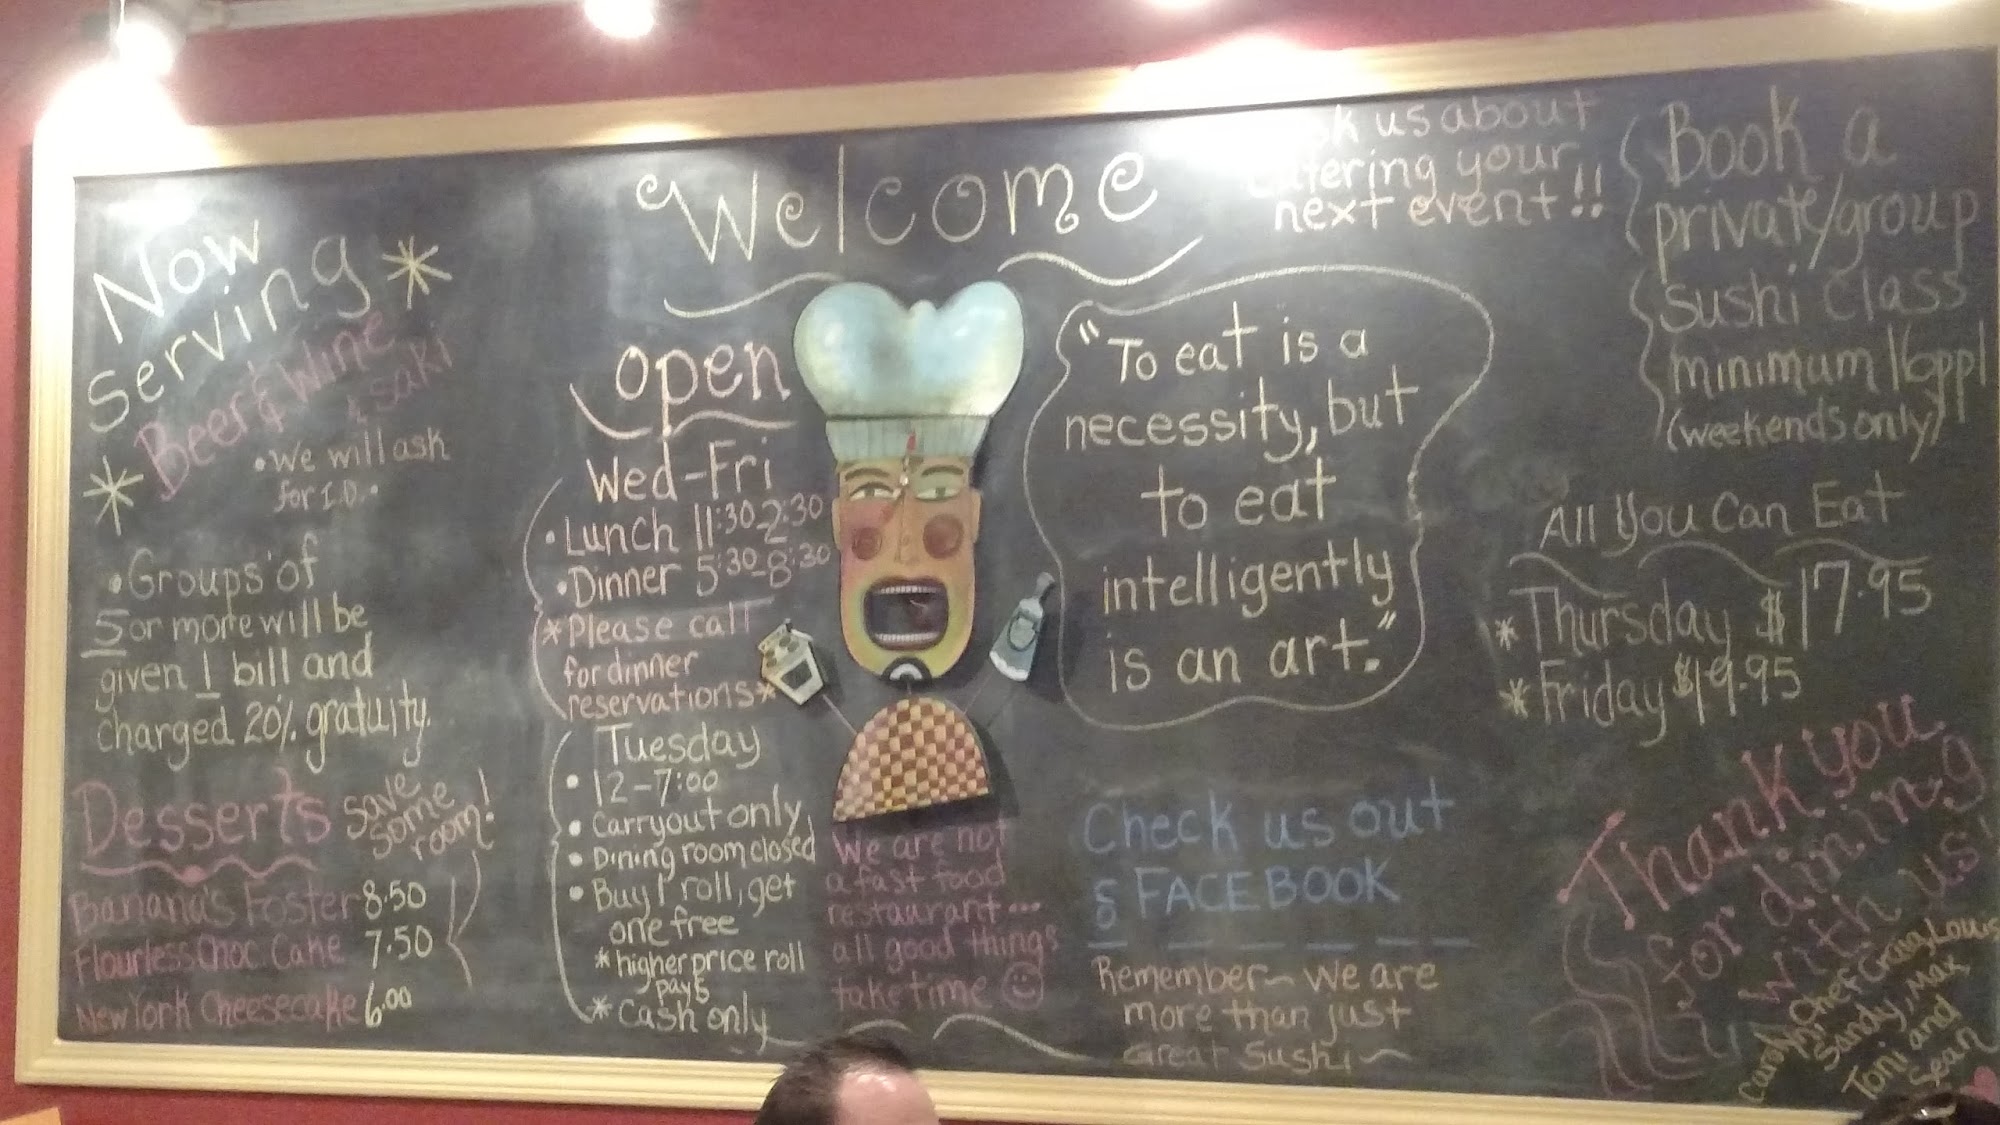 Now
Serving
Beer & Wine
& saki
• We will ask
for I.D. •
• Groups of
5 or more will be
given 1 bill and
charged 20% gratuity.
Desserts
save
some
room!
Banana's Foster 8.50
Flourless Choc. Cake 7.50
New York Cheesecake 6.00
Welcome
open
Wed-Fri
• Lunch 11:30-2:30
• Dinner 5:30-8:30
*Please call
for dinner
reservations*
Tuesday
• 12-7:00
• Carryout only
• Dining room closed
• Buy 1 roll, get
one free
*higher price roll
pays
* Cash only
We are not
a fast food
restaurant...
all good things
take time
"To eat is a
necessity, but
to eat
intelligently
is an art."
Check us out
FACEBOOK
Remember~ We are
more than just
Great Sushi~
us about
catering your
next event!!
Book a
private/group
sushi Class
minimum 16ppl
(weekends only)
All You Can Eat
* Thursday $17.95
* Friday $19.95
Thank you
for dining
with us!
Chef Craig, Louis
Sandy, Max,
Toni and
Sean